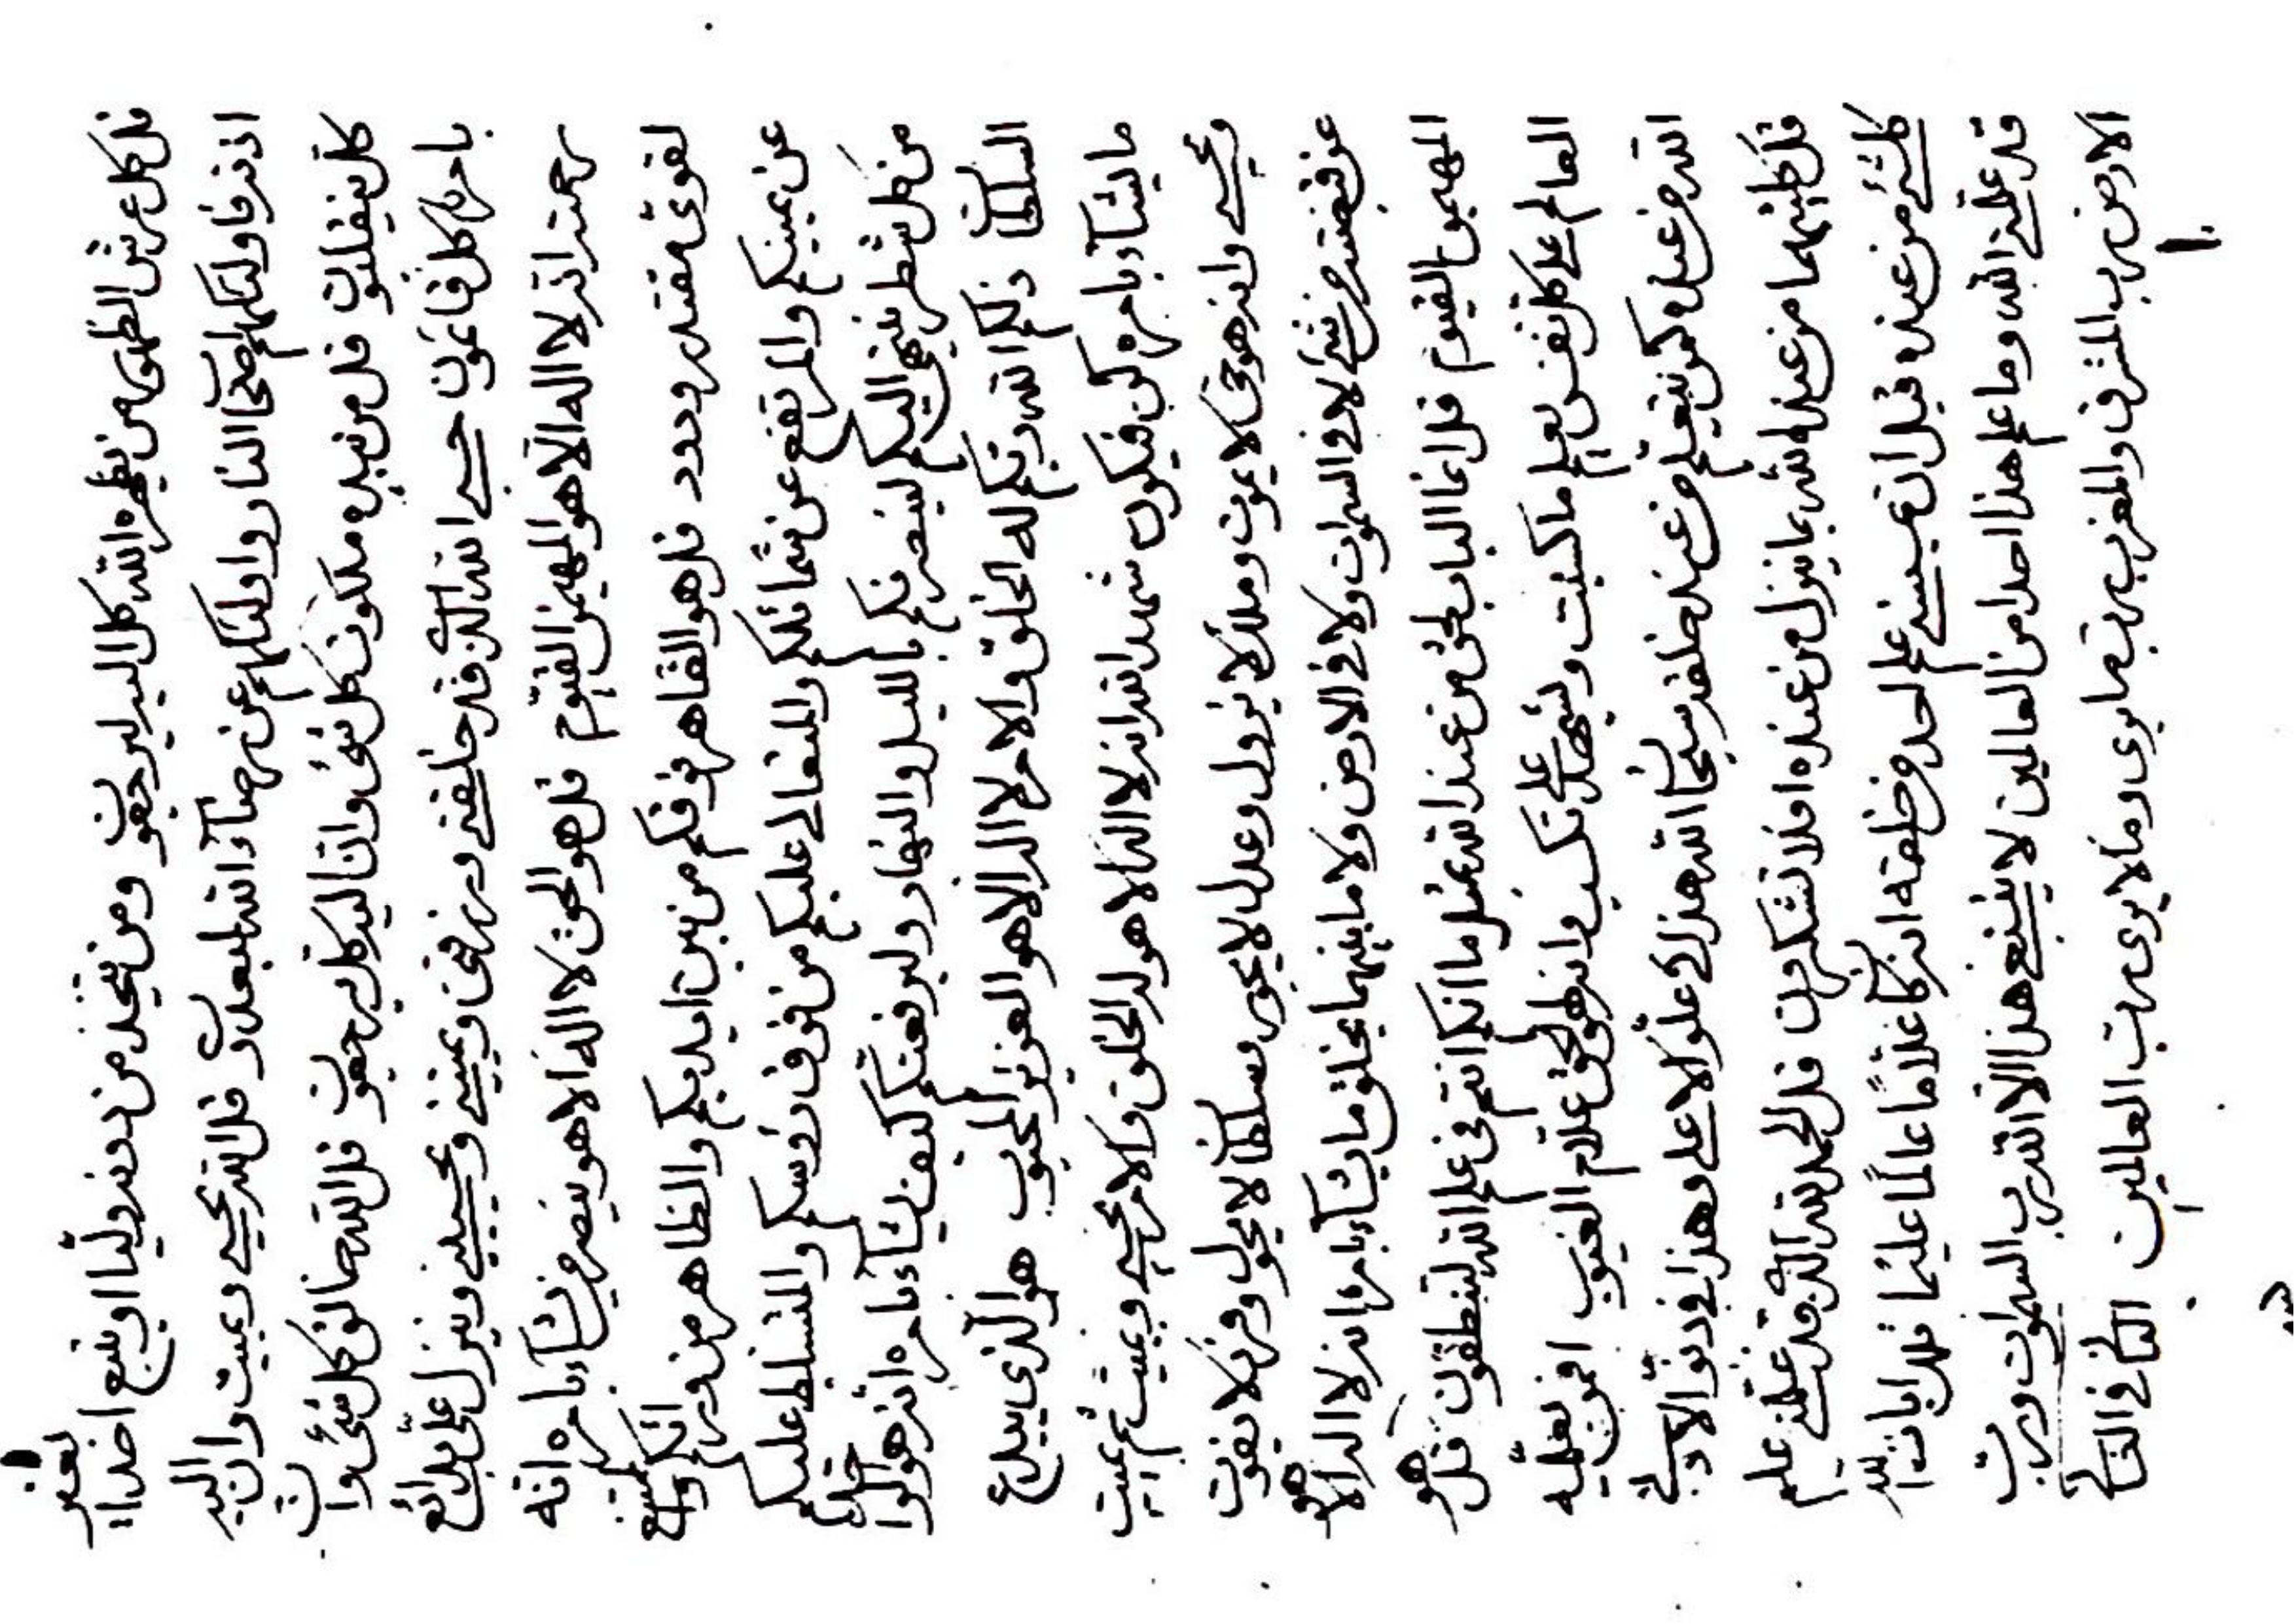 قل كل عرش الظهور من يظهره الله كل اليه ليرجعون ومن يتخذ من دونه وليا او يتبع احدا بغير
اذنه فاولئك هم اصحاب النار واولئك هم عن رضآء الله لمبعدون قل الله يحيي ويميت وان اليه
كل ينقلبون قل من بيده ملكوت كل شئ وانا اليه كل يرجعون قل الله خالق كل شئ وان
بامره كل قائمون حسبي الله الذي قد خلقني ورزقني ويميتني ويحييني وينزل علي بدائع
رحمته انه لا اله الا هو المهيمن القيوم قل هو الحق لا اله الا هو ينصر من يشآء بامره انه
لقوي مقتدر ودود قل هو القاهر فوقكم من بين ايديكم والظاهر من ورائكم والممتنع
عن يمينكم والمرتفع عن شمائلكم والمتعالي عليكم من فوق رؤسكم والمتسلط عليكم
من كل شطر ينتهي اليكم لينصرنكم بالليل والنهار وليرفعنكم كيف يشآء بامره انه هو الخلاق
السلطان ذلكم الله ربكم له الخلق والامر لا اله الا هو العزيز المحبوب هو الذي يبدع
ما يشآء بامره كن فيكون شهد الله انه لا اله الا هو له الخلق والامر يحيي ويميت ثم يميت
ويحيي وانه هو حي لا يموت وملك لا يزول وعدل لا يجور وسلطان لا يحول وفرد لا يفوت
عن قبضته من شئ لا في السموات ولا في الارض ولا ما بينهما يخلق ما يشآء بامره انه لا اله الا هو
المهيمن القيوم قل انما الباب لحق من عند الله بمثل ما انكم انتم في علم الله لتنطقون قل هو
العالم على كل نفس يعلم ما كسبت ويشهد على تكسب وانه لهو الحق علام الغيوب افمن يعلمه
الله من عنده كمن يتعلم من عند خلقه سبحان الله هذا في علو الاعلى وهذا في دنو الادنى
قل كليهما من عند الله بما ينزل من عنده افلا تشكرون قل الحمد لله الذي قد علمني علم
كل شئ من عنده قبل ان يمسسني علم احد من خلقه انه كان علاما عالما عليما قل اياته لله
قد علمني الله وما علم هذا احدا من العالمين لا ينبغي هذا الا لله رب السموات ورب
الارض رب المشرق والمغرب رب ما يرى وما لا يرى رب العالمين الثاني في الثاني